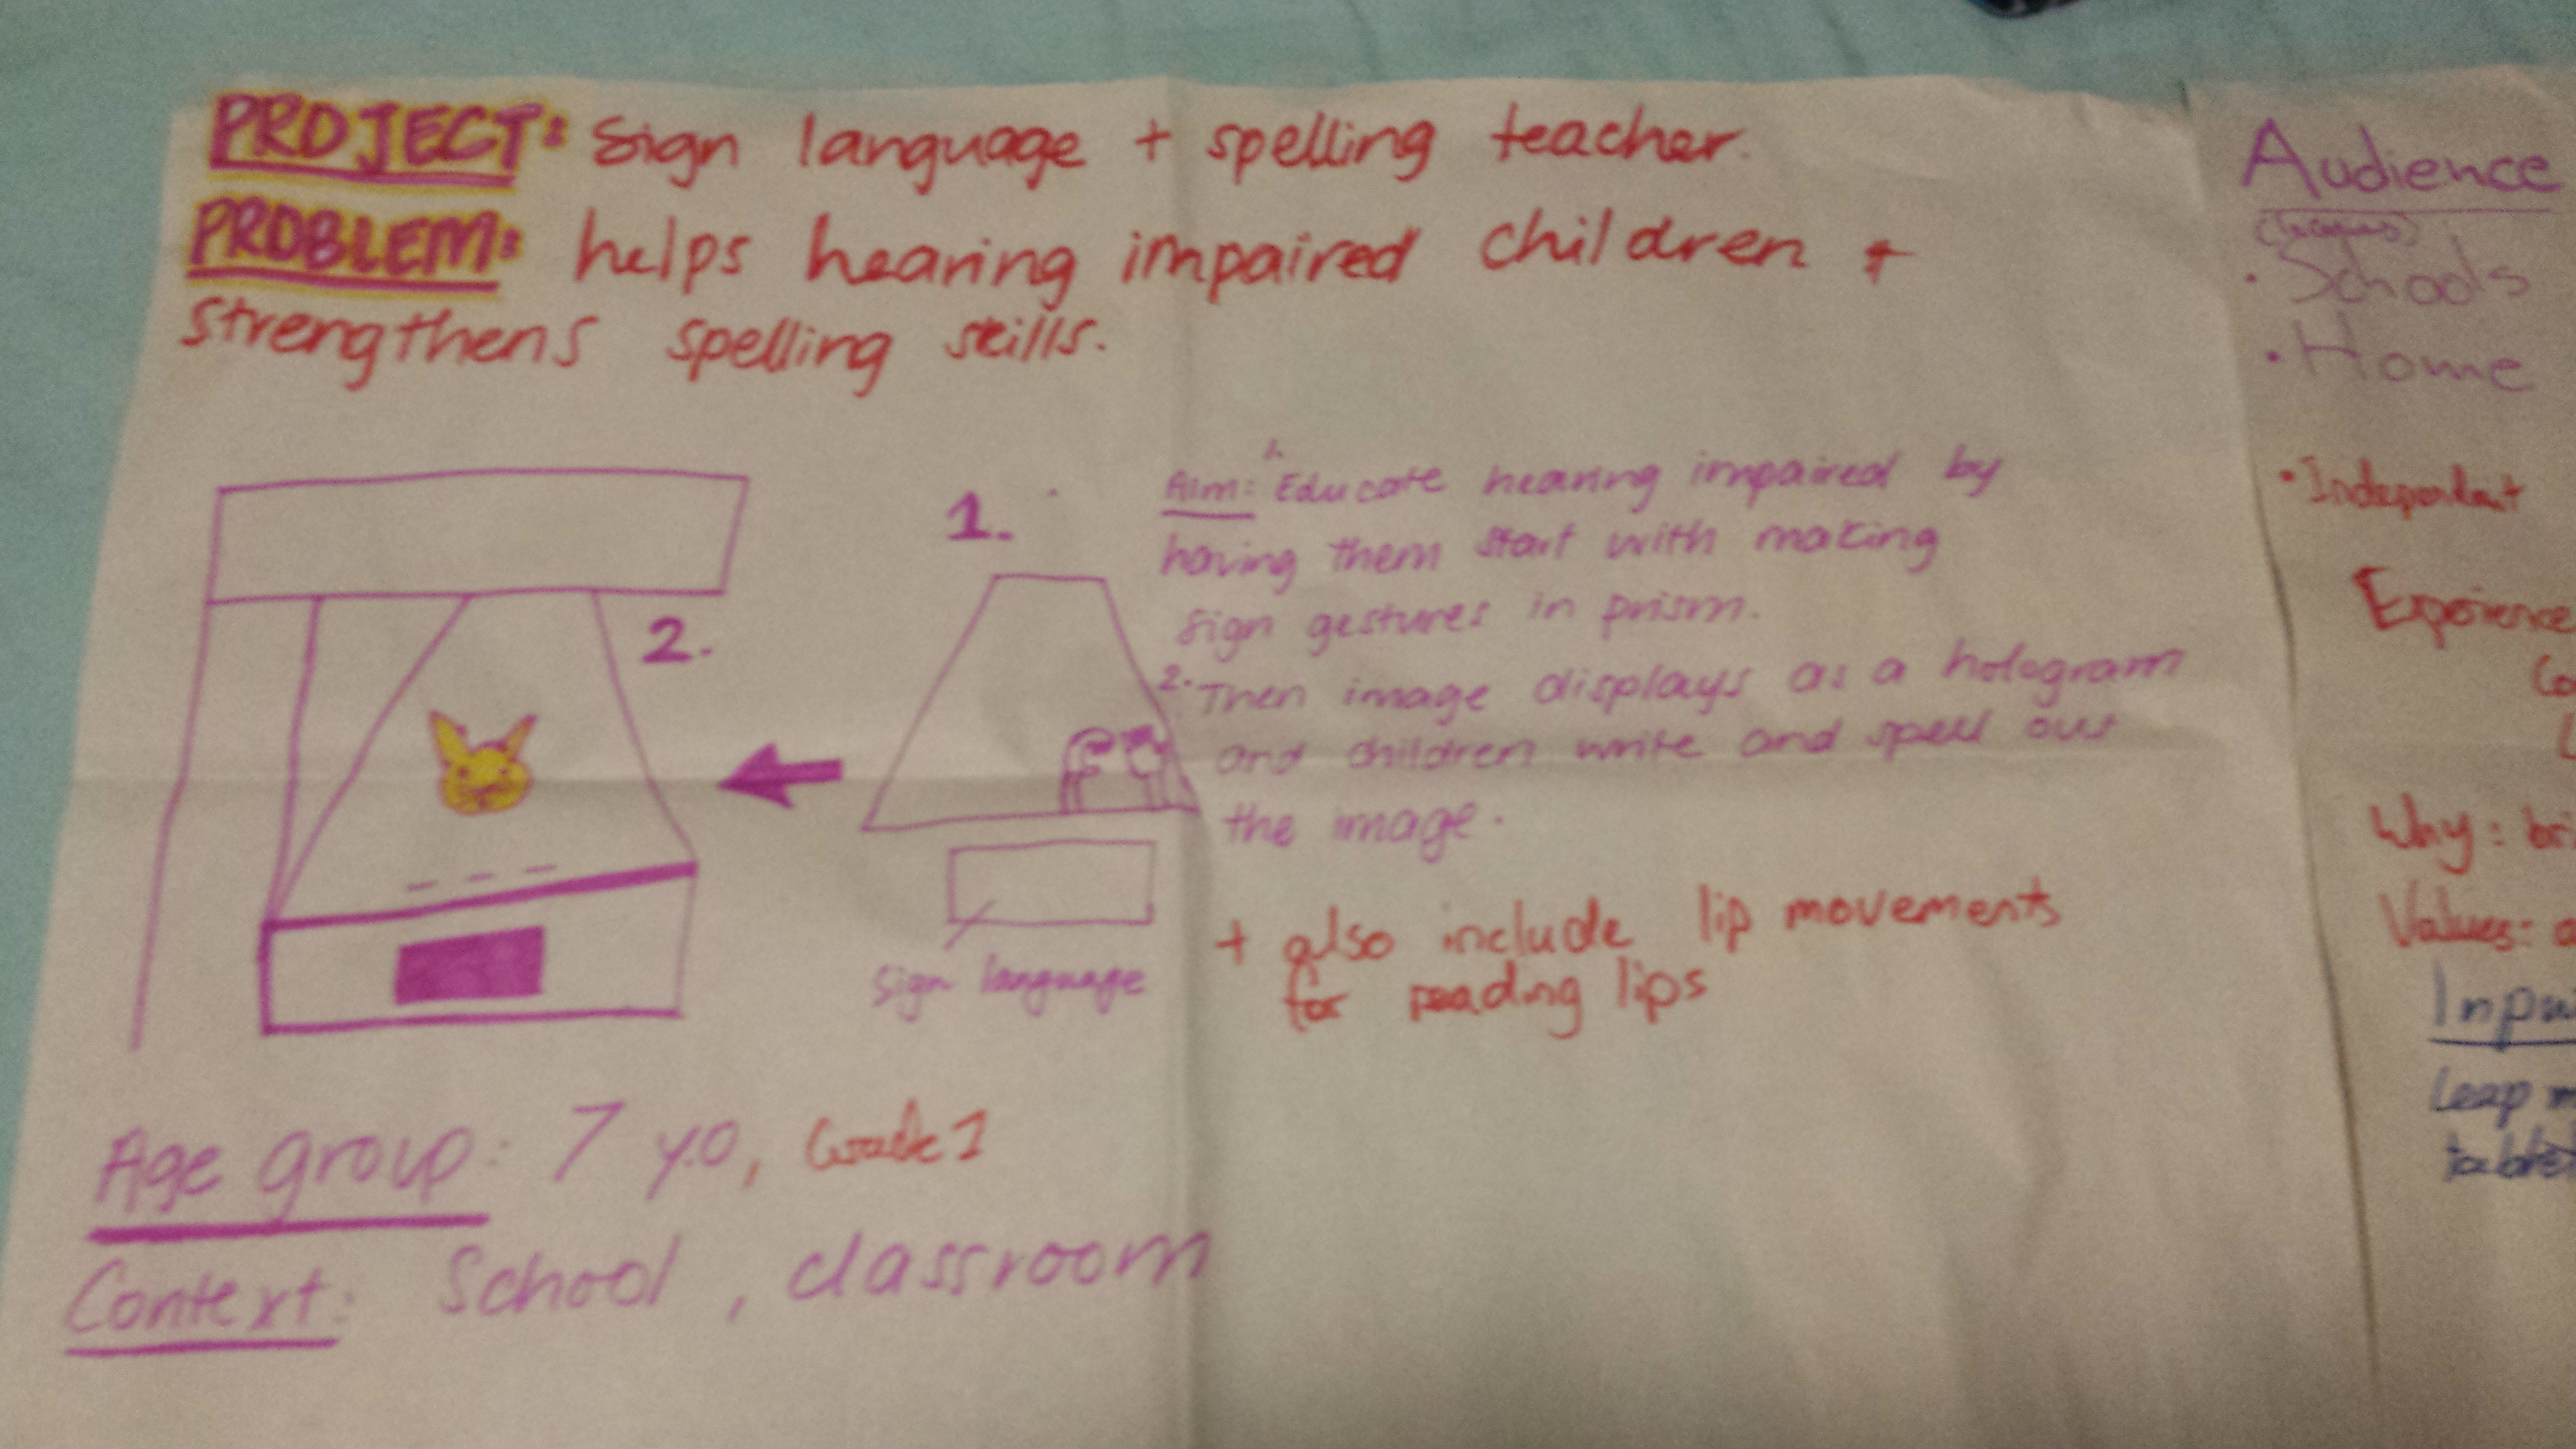 PROJECT: Sign language + spelling teacher.
PROBLEM: helps hearing impaired children +
strengthens spelling skills.
1.
Aim: 1. Educate hearing impaired by
having them start with making
sign gestures in prism.
2. Then image displays as a hologram
and children write and spell out
the image.
2.
sign language
+ also include lip movements
for reading lips
Age group: 7 y.o, Grade 1
Context: School, classroom
Audience
• Schools
• Home
• Independent
Experience
Why: bri
Values: a
Inpu
Leap m
tablet